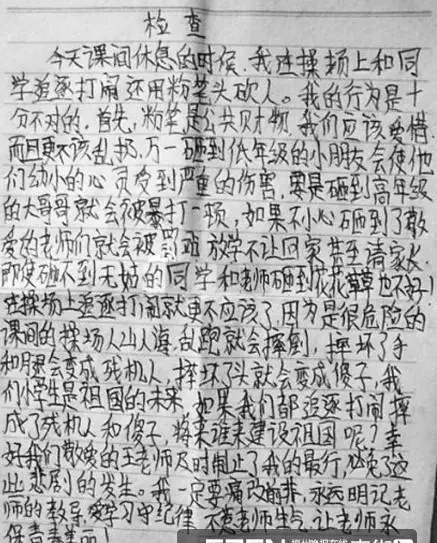 检查
今天课间休息的时候，我在操场上和同
学追逐打闹还用粉笔头砍人。我的行为是十
分不对的，首先，粉笔是公共财物，我们应该爱惜，
而且更不该乱扔，万一砸到低年级的小朋友会使他
们幼小的心灵受到严重的伤害，要是砸到高年级
的大哥哥就会被暴打一顿，如果不小心砸到了敬
爱的老师们就会被罚站放学不让回家甚至请家长，
即使砸不到无姑的同学和老师砸到花花草草也不好！
在操场上追逐打闹就更不应该了，因为是很危险的
课间的操场人山人海，乱跑就会摔倒，摔坏了手
和腿会变成残机人，摔坏了头就会变成傻子，我
们小学生是祖国的未来，如果我们都追逐打闹摔
成了残机人和傻子，将来谁来建设祖国呢？幸
好我们敬爱的王老师及时制止了我的最行，避免了这
些悲剧的发生。我一定要痛改前非，永远明记老
师的教导，爱学习守纪律，不惹老师生气，让老师永
保青春美丽！